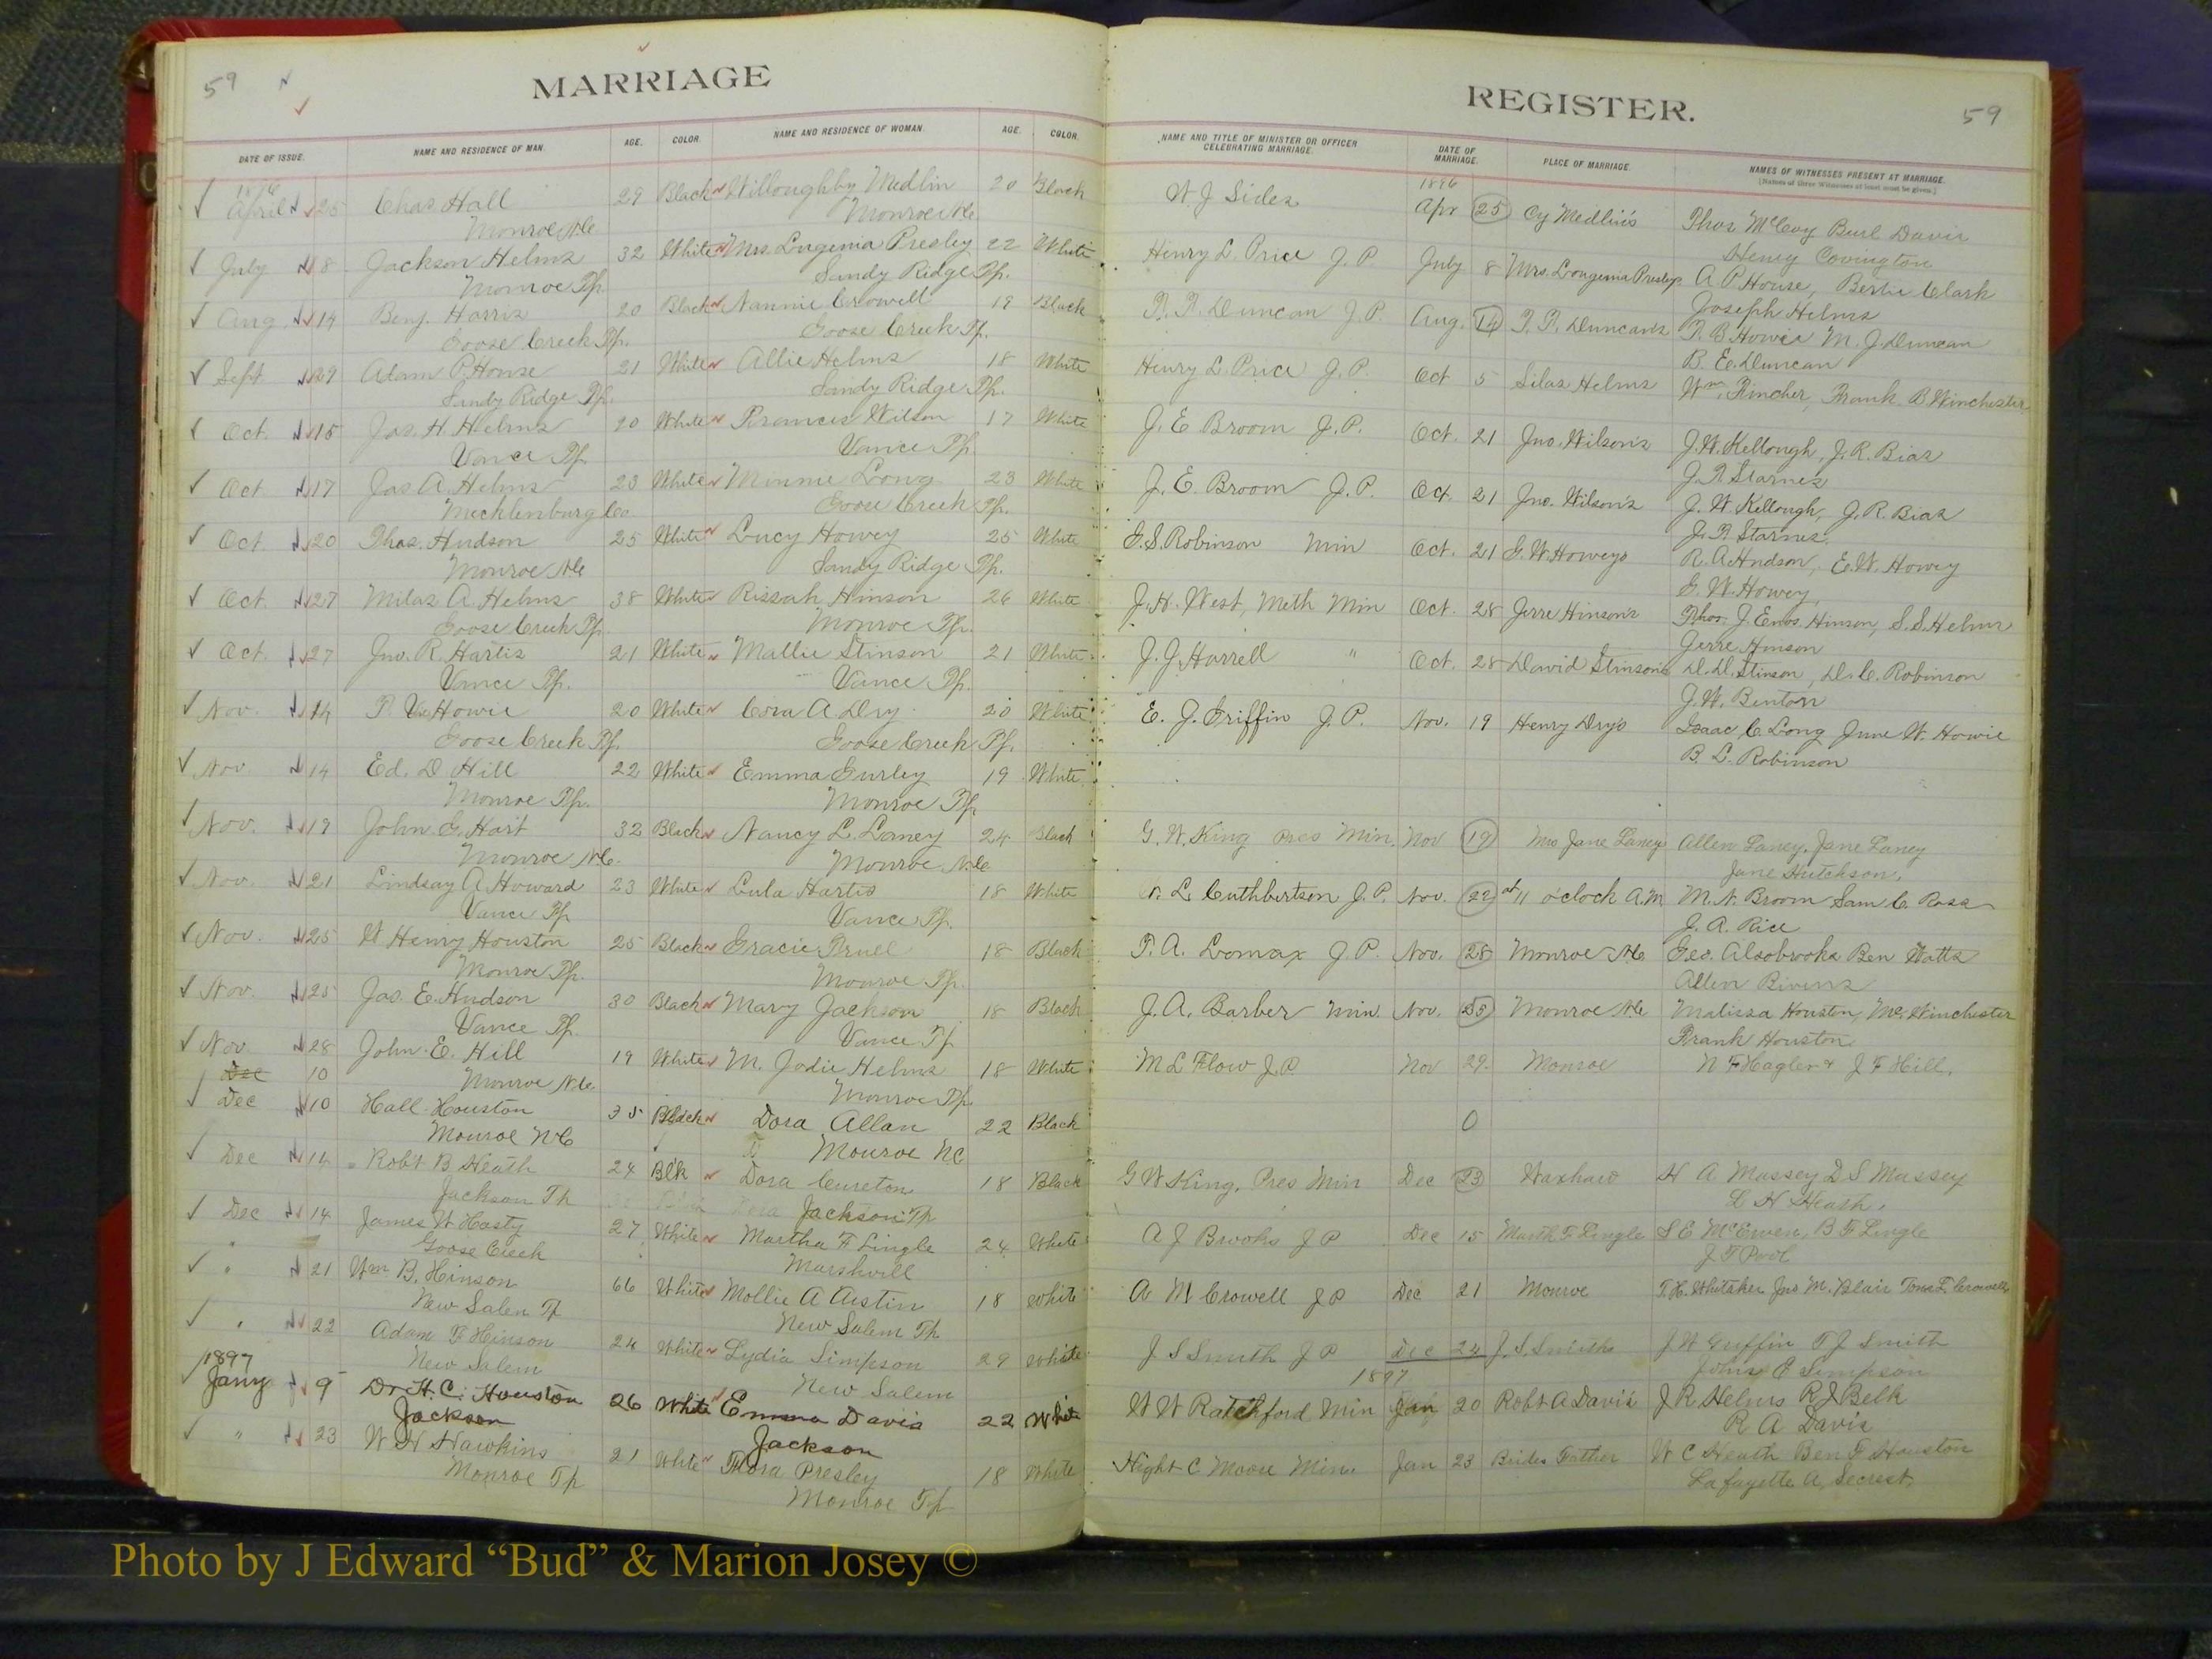 59
MARRIAGE
DATE OF ISSUE. NAME AND RESIDENCE OF MAN. AGE. COLOR. NAME AND RESIDENCE OF WOMAN. AGE. COLOR.
1896
April 25 Chas Hall 29 Black Willoughby Medlin 20 Black
Monroe N.C. Monroe N.C.
July 8 Jackson Helms 32 White Mrs. Lugenia Presley 22 White
Monroe Tp. Sandy Ridge Tp.
Aug 14 Benj. Harris 20 Black Nannie Crowell 19 Black
Goose Creek Tp. Goose Creek Tp.
Sept 29 Adam P. House 21 White Allie Helms 18 White
Sandy Ridge Tp. Sandy Ridge Tp.
Oct. 15 Jas. H. Helms 20 White Frances Wilson 17 White
Vance Tp. Vance Tp.
Oct 17 Jas A. Helms 23 White Minnie Long 23 White
Mecklenburg Co. Goose Creek Tp.
Oct 20 Thos. Hudson 25 White Lucy Howey 25 White
Monroe N.C. Sandy Ridge Tp.
Oct. 27 Milas A. Helms 38 White Rissah Hinson 26 White
Goose Creek Tp. Monroe Tp.
Oct. 27 Jno. R. Hartis 21 White Mallie Stinson 21 White
Vance Tp. Vance Tp.
Nov. 14 Howie 20 White Cora A Dry 20 White
Goose Creek Tp. Goose Creek Tp.
Nov 14 Ed. D Hill 22 White Emma Gurley 19 White
Monroe Tp. Monroe Tp.
Nov. 19 John G. Hart 32 Black Nancy L. Laney 24 Black
Monroe N.C. Monroe N.C.
Nov. 21 Lindsay A Howard 23 White Lula Hartis 18 White
Vance Tp Vance Tp.
Nov. 25 W Henry Houston 25 Black Gracie Pruel 18 Black
Monroe Tp. Monroe Tp.
Nov. 25 Jas. E. Hudson 30 Black Mary Jackson 18 Black
Vance Tp. Vance Tp
Nov 28 John E. Hill 19 White M. Jodie Helms 18 White
Dec 10 Monroe N.C. Monroe Tp.
Dec 10 Hall Houston 35 Black Dora Allan 22 Black
Monroe N C Monroe NC
Dec 14 Robt B Heath 24 Blk Dora Cureton 18 Black
Jackson Th Jackson Th
Dec 14 James W Hasty 27 White Martha F Lingle 24 White
Goose Creek Marshvill
" 21 Wm B. Hinson 66 White Mollie A Austin 18 White
New Salem Tp New Salem Th
" 22 Adam F Hinson 24 White Lydia Simpson 29 White
New Salem New Salem
1897
Jany 9 Dr H. C. Houston 26 White Emma Davis 22 White
Jackson Jackson
" 23 W H Hawkins 21 White Flora Presley 18 White
Monroe Tp Monroe Tp
REGISTER.
59
NAME AND TITLE OF MINISTER OR OFFICER CELEBRATING MARRIAGE. DATE OF MARRIAGE. PLACE OF MARRIAGE. NAMES OF WITNESSES PRESENT AT MARRIAGE.
[Names of three Witnesses at least must be given.]
1896
W J Sides Apr 25 Cy Medlin's Thos McCoy Burl Davis
Henry Covington
Henry L. Price J. P July 8 Mrs. Lougenia Presley A P House, Bertie Clark
Joseph Helms
Duncan J. P. Aug. 14 Duncan's Howie M. J. Duncan
B. E. Duncan
Henry L. Price J. P. Oct 5 Silas Helms Wm. Fincher, Frank B. Winchester
J. E Broom J. P. Oct. 21 Jno. Wilson's J. W. Kellough, J. R. Bias
J. F. Starnes
J. E. Broom J. P. Oct. 21 Jno. Wilson's J. W. Kellough, J. R. Bias
J. F. Starnes
G. S. Robinson Min Oct. 21 G. W. Howeys R. A. Hudson, E. W. Howey
G. W. Howey,
J. H. West, Meth Min Oct. 28 Jerre Hinson's Thos. J. Enos. Hinson, S. S. Helms
Jerre Hinson
J. J. Harrell " Oct. 28 David Stinson's D. D. Stinson, D. C. Robinson
J. W. Benton
E. J. Griffin J. P. Nov. 19 Henry Dry's Isaac C Long June W. Howie
B. L. Robinson
G. W. King Pres Min. Nov 19 Mrs Jane Laneys Allen Laney, Jane Laney
Jane Hutchson.
L Cuthbertson J. P. Nov. 22 at 11 o'clock A.M M. N. Broom Sam C. Ross
J. A. Rice
T. A. Lomax J. P. Nov. 28 Monroe N.C Geo. Alsobrooks Ben Watts
Allen Bivens
J. A. Barber Min. Nov. 25 Monroe N.C Malissa Houston, Winchester
Frank Houston
M L Flow J. P. Nov 29. Monroe N F Hagler & J F Hill.
0
G W King, Pres Min Dec 23 Waxhaw H A Massey D S Massey
C H Heath.
A J Brooks J P Dec 15 Marth F Lingle S E McEwen, B F Lingle
J T Pool
A M Crowell J P Dec 21 Monroe T. H. Whitaker Jno M. Blair Crowell
J S Smith J P Dec 24 J. S. Smiths J W Griffin T J Smith
John P Simpson
1897
W W Ratchford Min Jan 20 Robt A Davis J R Helms R J Belk
R A Davis
Hight C Moore Min. Jan 23 Brides Father W C Heath Ben F Houston
Lafayette A, Secrest.
Photo by J Edward “Bud” & Marion Josey ©